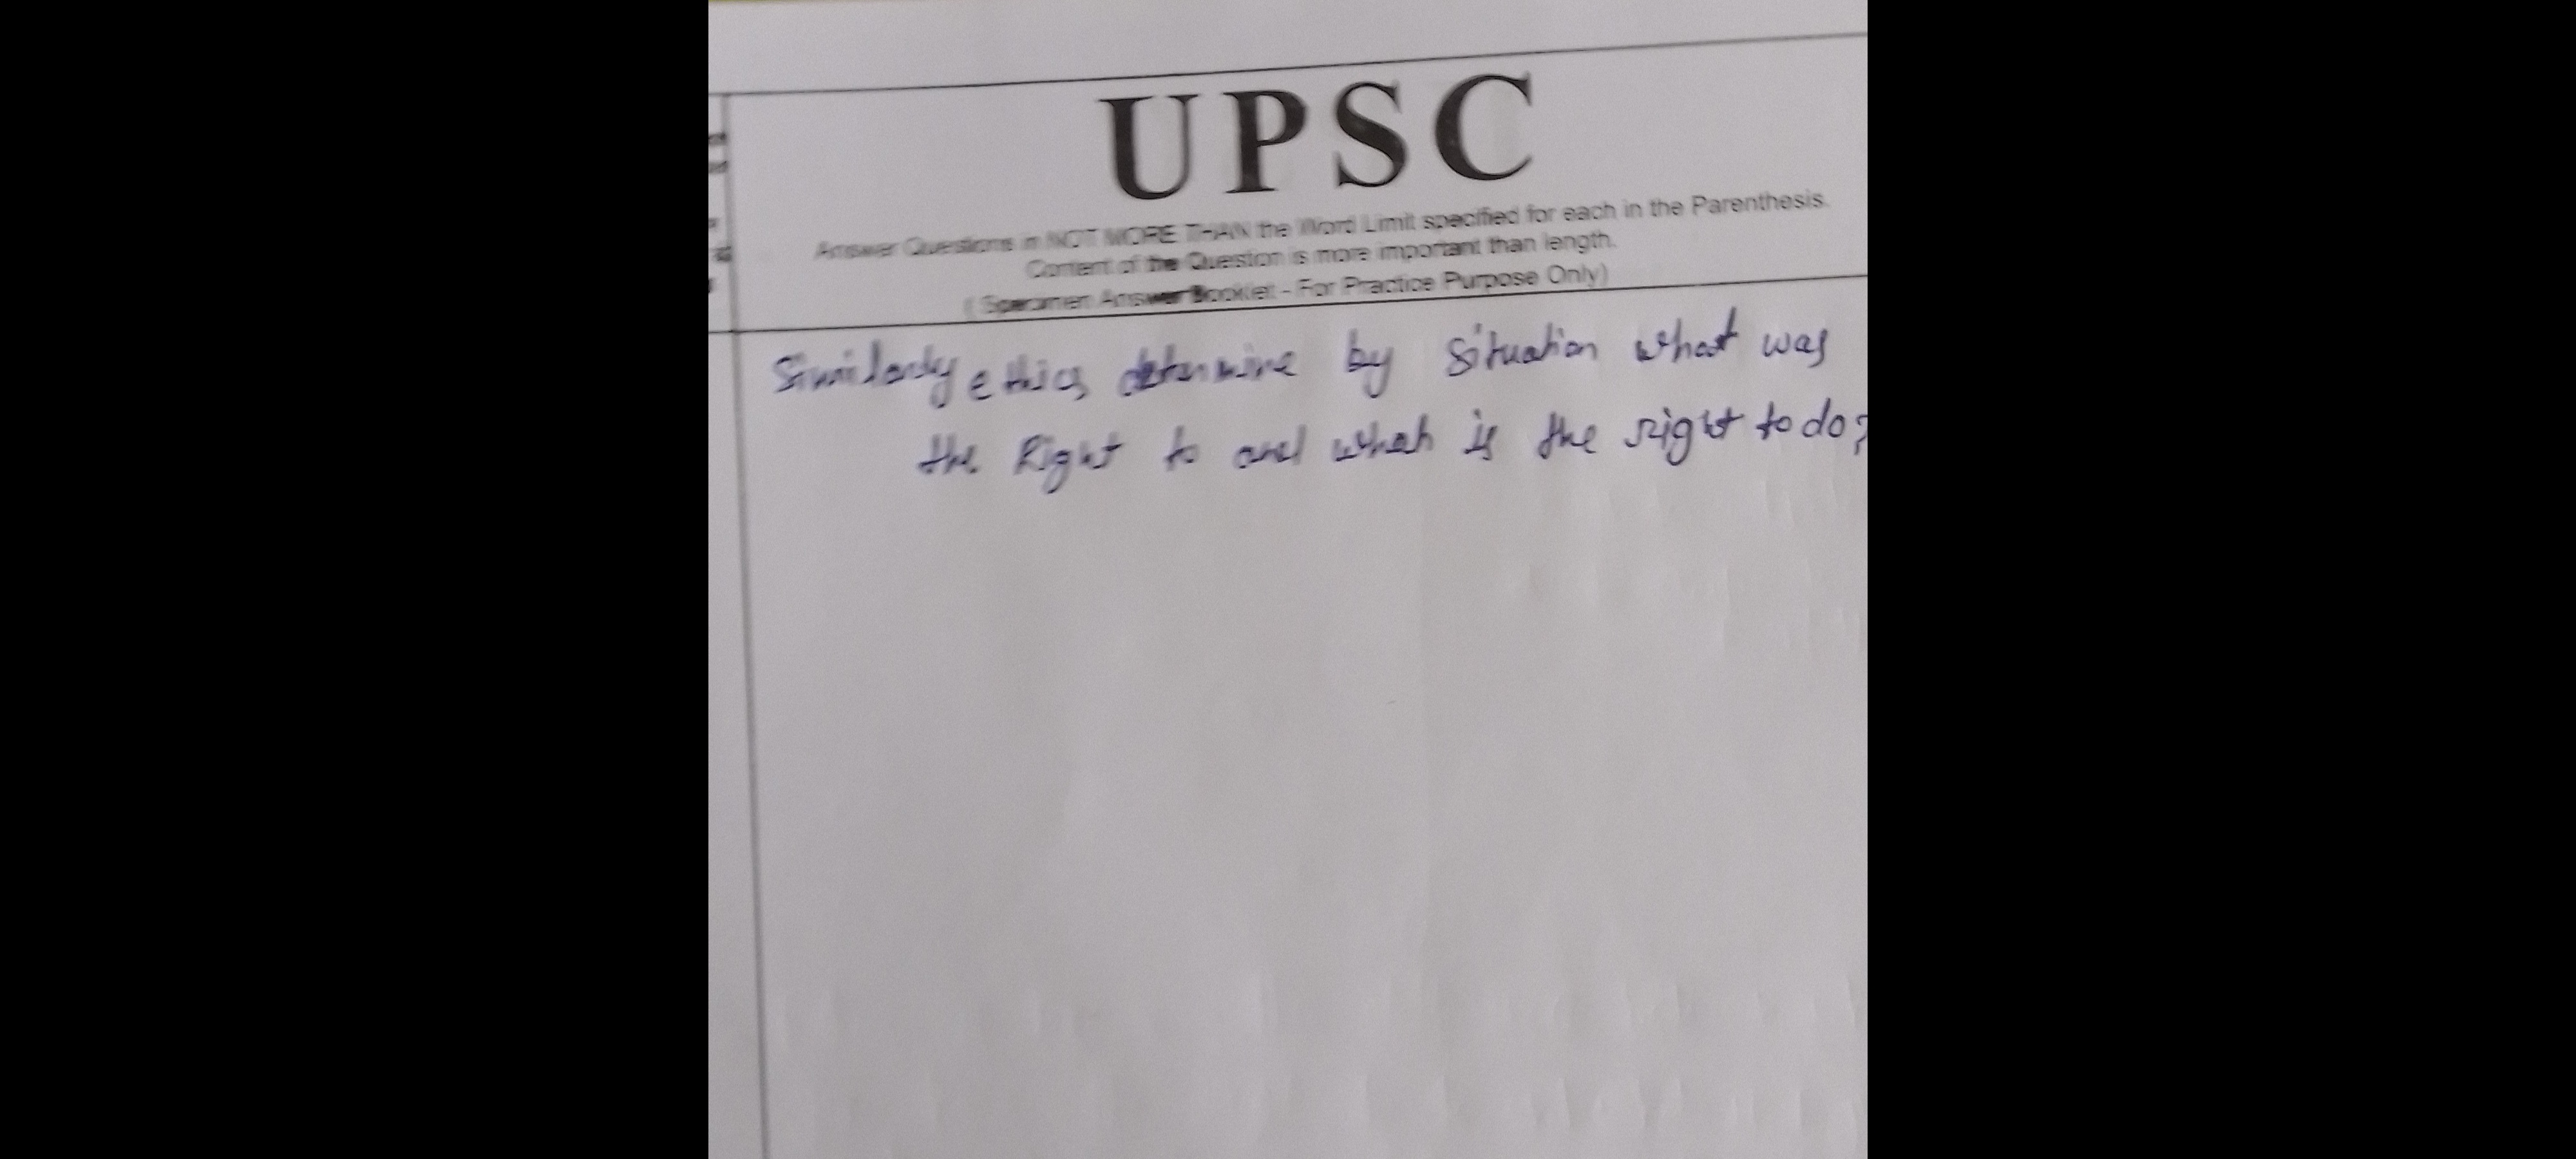 UPSC
Answer Questions in NOT MORE THAN the Word Limit specified for each in the Parenthesis.
Content of the Question is more important than length.
( Specimen Answer Booklet - For Practice Purpose Only)
Similarly ethics determine by situation what was
the Right to and what is the right to do?